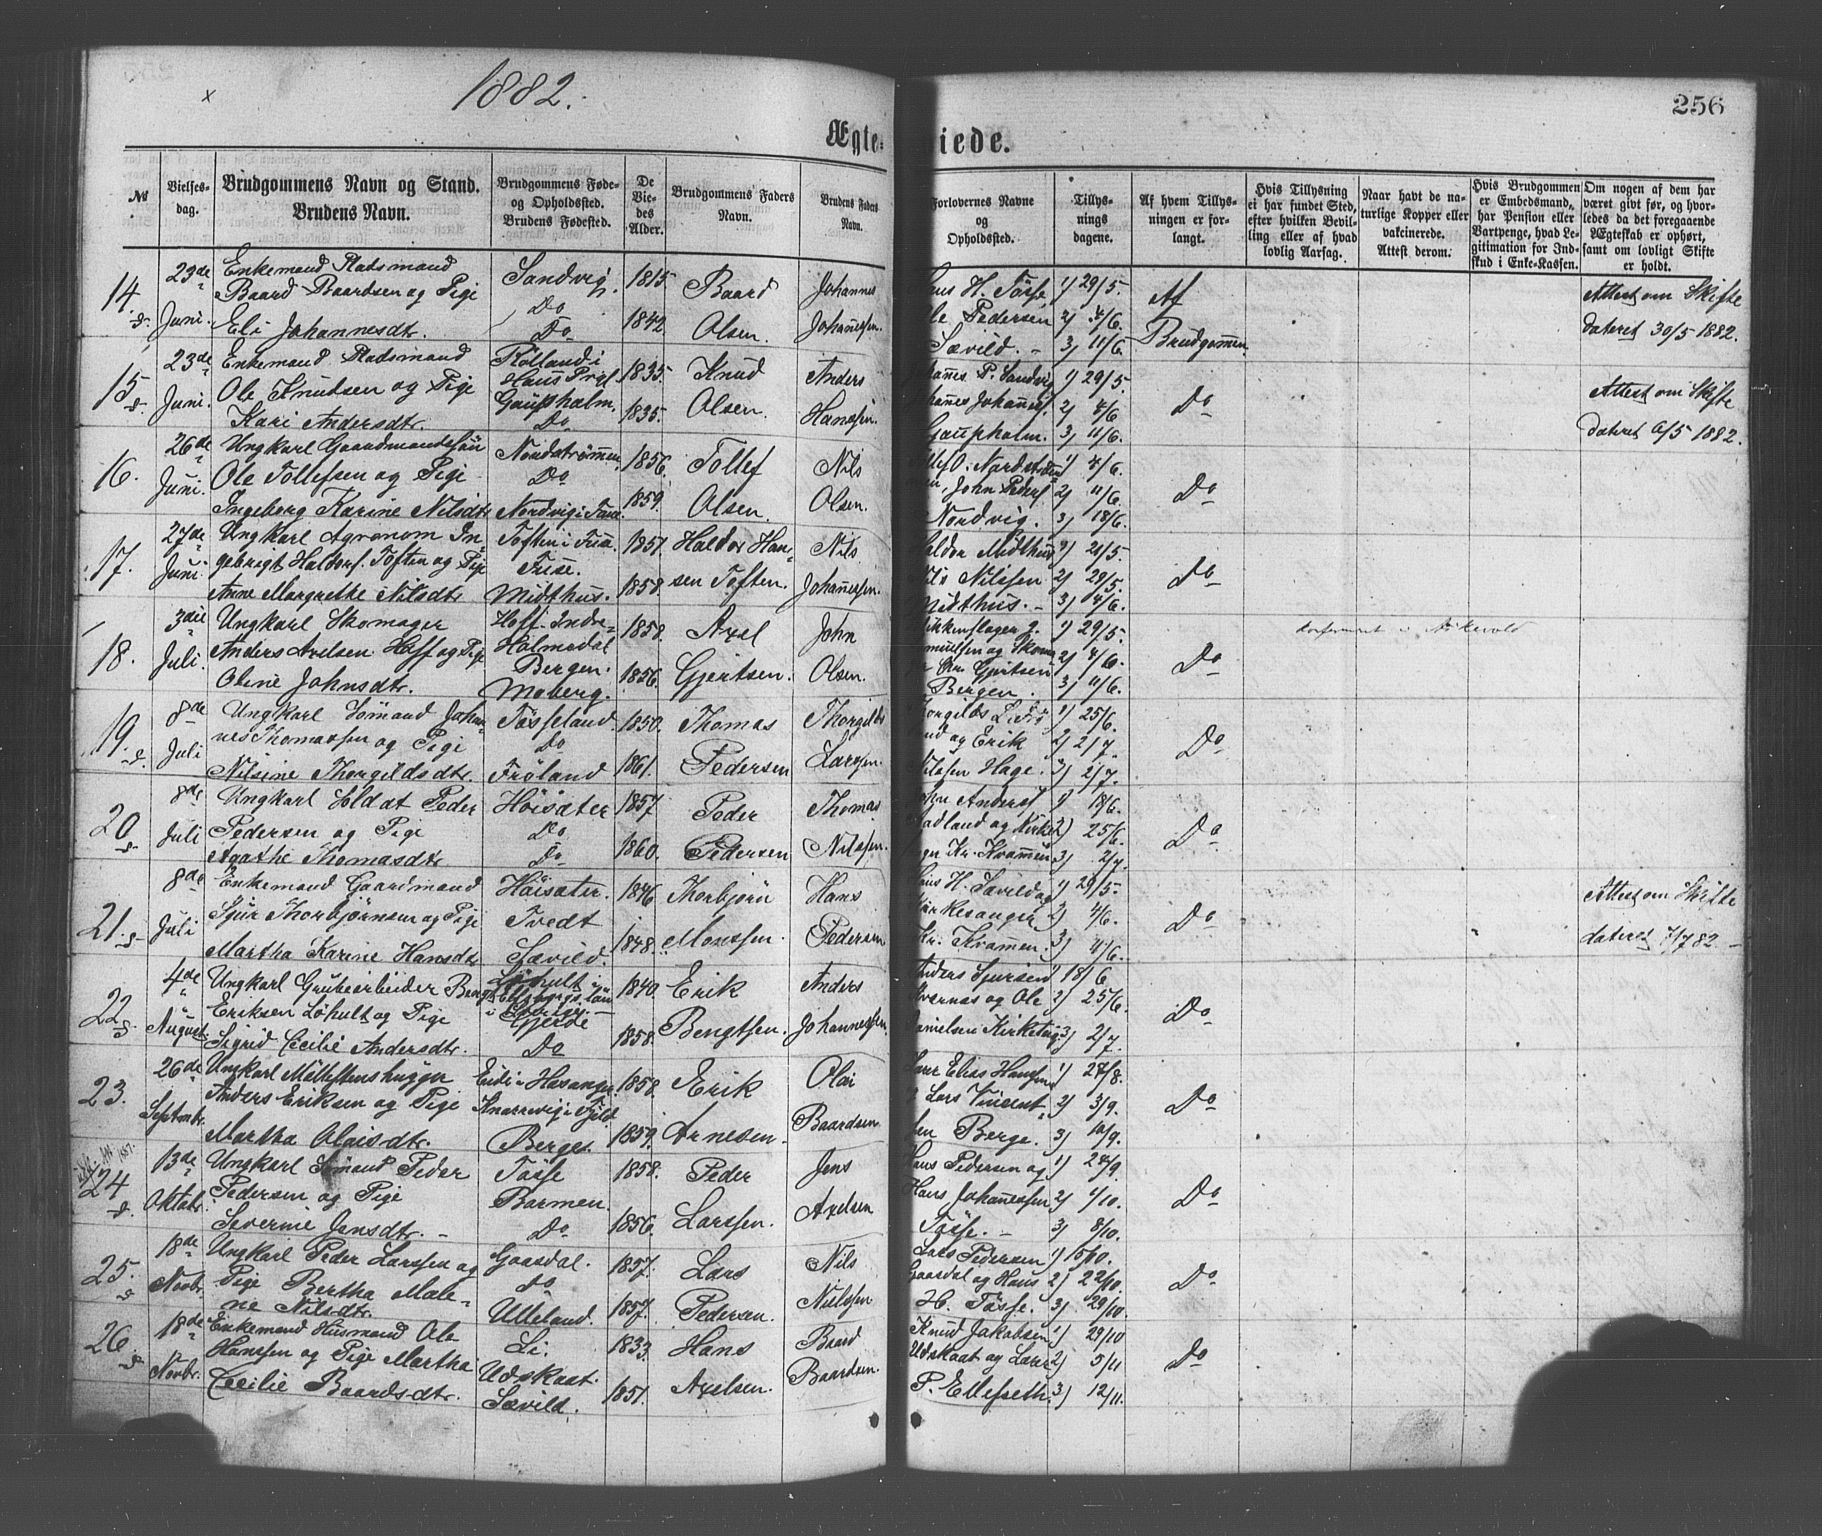 1882.
256
Ægteviede.
No
Vielses-
dag.
Brudgommens Navn og Stand.
Brudens Navn.
Brudgommens Føde-
og Opholdsted.
Brudens Fødested.
De
Vie-
des
Alder.
Brudgommens Faders
Navn.
Brudens Faders
Navn.
Forlovernes Navne
og
Opholdsted.
Tillys-
nings
dagene.
Af hvem Tillys-
ningen er for-
langt.
Hvis Tillysning
ei har fundet Sted,
efter hvilken Bevil-
ling eller af hvad
lovlig Aarsag.
Naar havt de na-
turlige Kopper eller
vakcinerede.
Attest derom.
Hvis Brudgommen
er Embedsmand,
har Pension eller
Vartpenge, hvad Le-
gitimation for Ind-
skud i Enke-Kassen.
Om nogen af dem har
været givt før, og hvor-
ledes da det foregaaende
Ægteskab er ophørt,
samt om lovligt Skifte
er holdt.
14. 23de Juni.
Enkemand Pladsmand
Baard Baardsen og Pige
Eli Johannesdtr.
Sandvig
Do
Do
1815
1842
Baard
Olsen.
Johannes
Johannessen.
H. Tösse
Pedersen
Sævild.
1) 29/5.
2) 4/6.
3) 11/6.
Af
Brudgommen
Attest om Skifte
dateret 30/5 1882.
15. 23de Juni.
Enkemand Pladsmand
Ole Knudsen og Pige
Kari Andersdtr.
Rolland i
Haus Prgl
Gaupholm.
Do
1835.
1835.
Knud
Olsen.
Anders
Hanssen.
P. Sandvig
Johannes
Gaupholm.
1) 29/5.
2) 4/6
3) 11/6.
Do
Attest om Skifte
dateret 6/5 1882.
16. 26de Juni.
Ungkarl Gaardmandssön
Ole Tollefsen og Pige
Ingeborg Karine Nilsdtr
Nordströmmen
Do
Nordvig i Fuse.
1856.
1859.
Tollef
Olsen.
Nils
Olsen.
O. Nordström
John Peders
Nordvig.
1) 4/6.
2) 11/6.
3) 18/6.
Do
17. 27de Juni.
Ungkarl Agronom In-
gebrigt Haldors. Toften og Pige
Anne Margrethe Nilsdtr
Toften i Fuse
Fuse.
Midthus.
1857.
1858.
Haldor Han-
sen Toften.
Nils
Johannessen.
Midthus
Nils Nilssen
Midthus.
1) 21/5.
2) 29/5.
3) 4/6.
Do
18. 3die Juli.
Ungkarl Skomager
Anders Axelsen Hoff og Pige
Oline Johnsdtr.
Hoff. Indre
Holmedal
Bergen.
Moberg.
1858.
1856.
Axel
Gjertsen.
John
Olsen.
Gjertsen
Bergen.
1) 29/5.
2) 4/6.
3) 11/6.
Do
19. 8de Juli
Ungkarl Sömand Johan-
nes Thomassen og Pige
Nilsine Thorgildsdtr.
Tösseland.
Do
Fröland
1850.
1861.
Thomas
Pedersen
Thorgilds
Larssen.
og Erik
Nilssen Hage.
1) 25/6.
2) 2/7.
3) 2/7.
Do
20. 8de Juli
Ungkarl Soldat Peder
Pedersen og Pige
Agathe Thomasdtr.
Höisæter
Do
Do
1857.
1860.
Peder
Pedersen
Thomas
Nilssen.
John Anders
Hadland og Kirke
Kr. Kramen
1) 18/6.
2) 25/6.
3) 2/7.
Do
21. 8de Juli
Enkemand Gaardmand
Sjur Thorbjørnsen og Pige
Martha Karine Hansdtr
Höisæter.
Tvedt
Sævild.
1846
1848.
Thorbjörn
Monssen.
Hans
Pedersen
H. Sævild og
Kirkesanger
Kr. Kramen.
1) 29/5.
2) 4/6.
3) 11/6.
Do
Attest om Skifte
dateret 7/7 82
22. 4de August.
Ungkarl Grubearbeider Bengt
Eriksen Löhult og Pige
Sigrid Cecilie Andersdtr.
Löhult i
Elfsborgs Län
i Sverige.
Gjerde
Do
1840.
1858.
Erik
Bengtsen.
Anders
Johannessen.
Anders Sjursen
Kvernæs og Ole
Danielsen Kirketeig
1) 18/6
2) 25/6.
3) 2/7.
Do
23. 26de Septembr.
Ungkarl
Anders Eriksen og Pige
Martha Olaisdtr.
Eide i Hosanger.
Knarrevig i Fjeld
Berge.
1858.
1859.
Erik
Arnesen.
Olai
Baardsen.
Elias Hanssen
Lars Vincent
sen Berge.
1) 27/8.
2) 3/9.
3) 10/9.
Do
24 13de Oktobr.
Ungkarl Sömand Peder
Pedersen og Pige
Severine Jensdtr.
Tösse
Barmen.
Do
1858.
1856.
Peder
Larssen.
Jens
Axelsen
Hans Pedersen og
Hans Johannessen
Tösse.
1) 24/9.
2) 1/10.
3) 8/10.
Do
25. 18de Novbr.
Ungkarl Peder Larssen og
Pige Bertha Male-
ne Nilsdtr.
Gaasdal.
Do
Ulleland.
1857.
1857.
Lars
Pedersen.
Nils
Nielssen
Lars Pedersen
Gaasdal og Hans
H. Tösse.
1) 15/10.
2) 22/10.
3) 29/10.
Do
26. 18de Novbr.
Enkemand Husmand Ole
Hanssen og Pige Martha
Cecilie Baardsdtr.
Li.
Udskaat.
Sævild.
1833.
1851.
Hans
Axelsen.
Baard
Baardsen.
Knud Jakobsen
Udskaat og Lars
P. Ellefseth.
1) 29/10
2) 5/11
3) 12/11.
Do